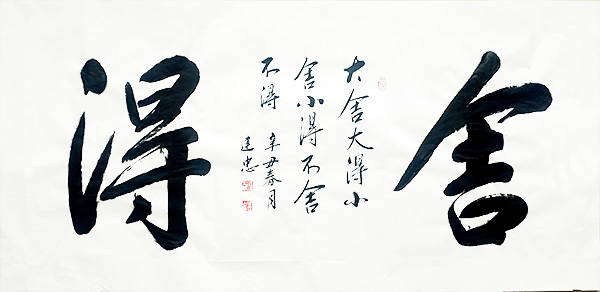 舍
大舍大得小
舍小得不舍
不得 辛丑春月
得